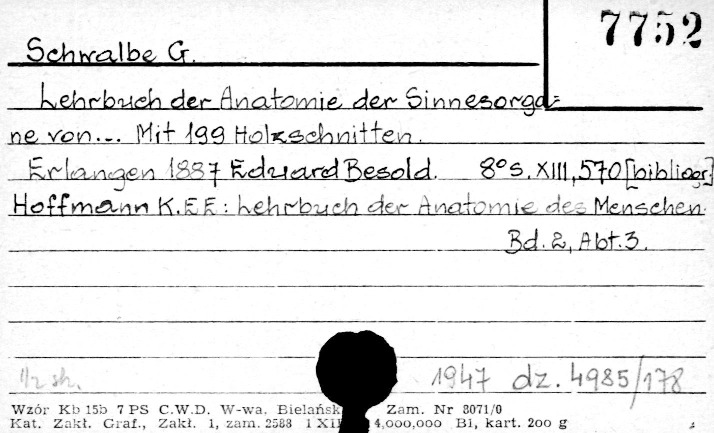 7752
Schwalbe G.
Lehrbuch der Anatomie der Sinnesorga-
ne von... Mit 199 Holzschnitten.
Erlangen 1887 Eduard Besold. 8° s. XIII, 570 [bibliogr.]
Hoffmann K.E.E.: Lehrbuch der Anatomie des Menschen.
Bd. 2, Abt. 3.
1/2 sk. 1947 dz. 4985/178
Wzór Kb 15b 7 PS C.W.D. W-wa. Zam. Nr 8071/0
Kat. Zakł. Graf., Zakł. 1, zam. 2588 4,000,000 Bl, kart. 200 g